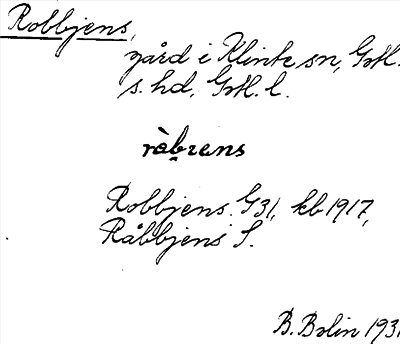 Robbjens,
gård i Klinte sn, Gotl.
s. hd, Gotl. l.
ràbɪens
Robbjens. G31, kb 1917,
Råbbjens S.
B. Bolin 1931